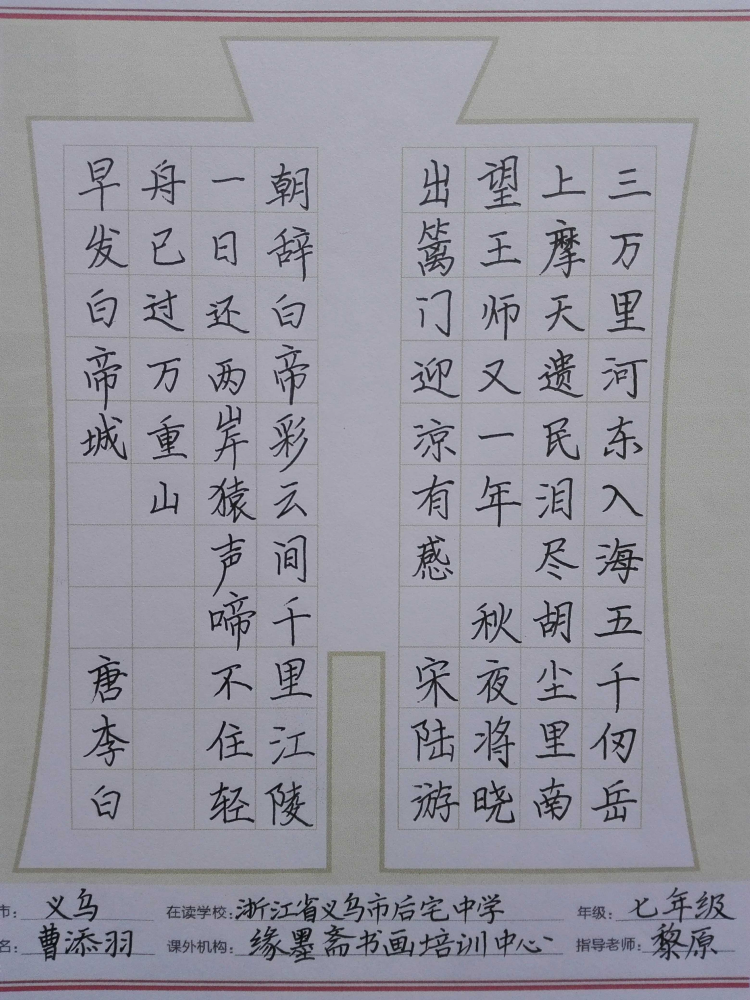 三万里河东入海五千仞岳
上摩天遗民泪尽胡尘里南
望王师又一年 秋夜将晓
出篱门迎凉有感 宋陆游
朝辞白帝彩云间千里江陵
一日还两岸猿声啼不住轻
舟已过万重山
早发白帝城 唐李白
市: 义乌 在读学校: 浙江省义乌市后宅中学 年级: 七年级
名: 曹添羽 课外机构: 缘墨斋书画培训中心 指导老师: 黎原